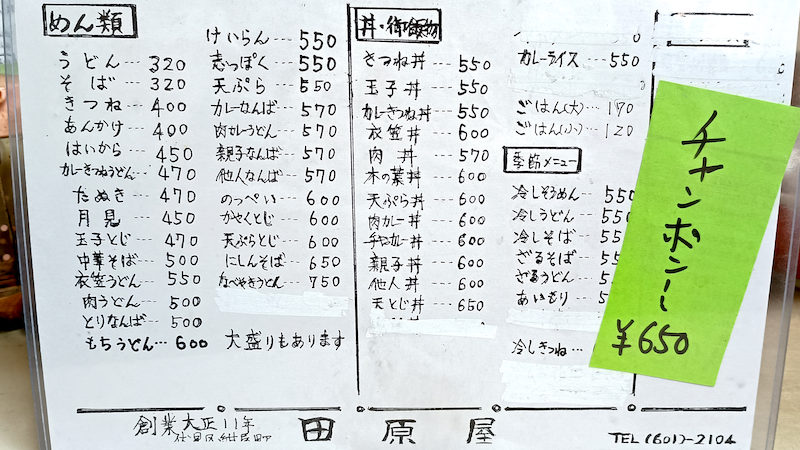 めん類
うどん… 320
そば… 320
きつね… 400
あんかけ… 400
はいから… 450
カレーきつねうどん… 470
たぬき… 470
月見… 450
玉子とじ… 470
中華そば… 500
衣笠うどん… 550
肉うどん… 500
とりなんば… 500
もちうどん… 600
けいらん… 550
志っぽく… 550
天ぷら… 550
カレーなんば… 570
肉カレーうどん… 570
親子なんば… 570
他人なんば… 570
のっぺい… 600
かやくとじ… 600
天ぷらとじ… 600
にしんそば… 650
なべやきうどん… 750
大盛りもあります
丼・御飯物
きつね丼… 550
玉子丼… 550
カレーきつね丼… 550
衣笠丼… 600
肉丼… 570
木の葉丼… 600
天ぷら丼… 600
肉カレー丼… 600
カレー丼… 600
親子丼… 600
他人丼… 600
天とじ丼… 650
カレーライス… 550
ごはん(大)… 170
ごはん(小)… 120
季節メニュー
冷しそうめん… 550
冷しうどん… 55
冷しそば… 55
ざるそば… 55
ざるうどん… 5
あいもり… 5
冷しきつね…
チャンポンー
¥650
創業大正11年
伏見区紺屋町
田原屋
TEL(601)-2104